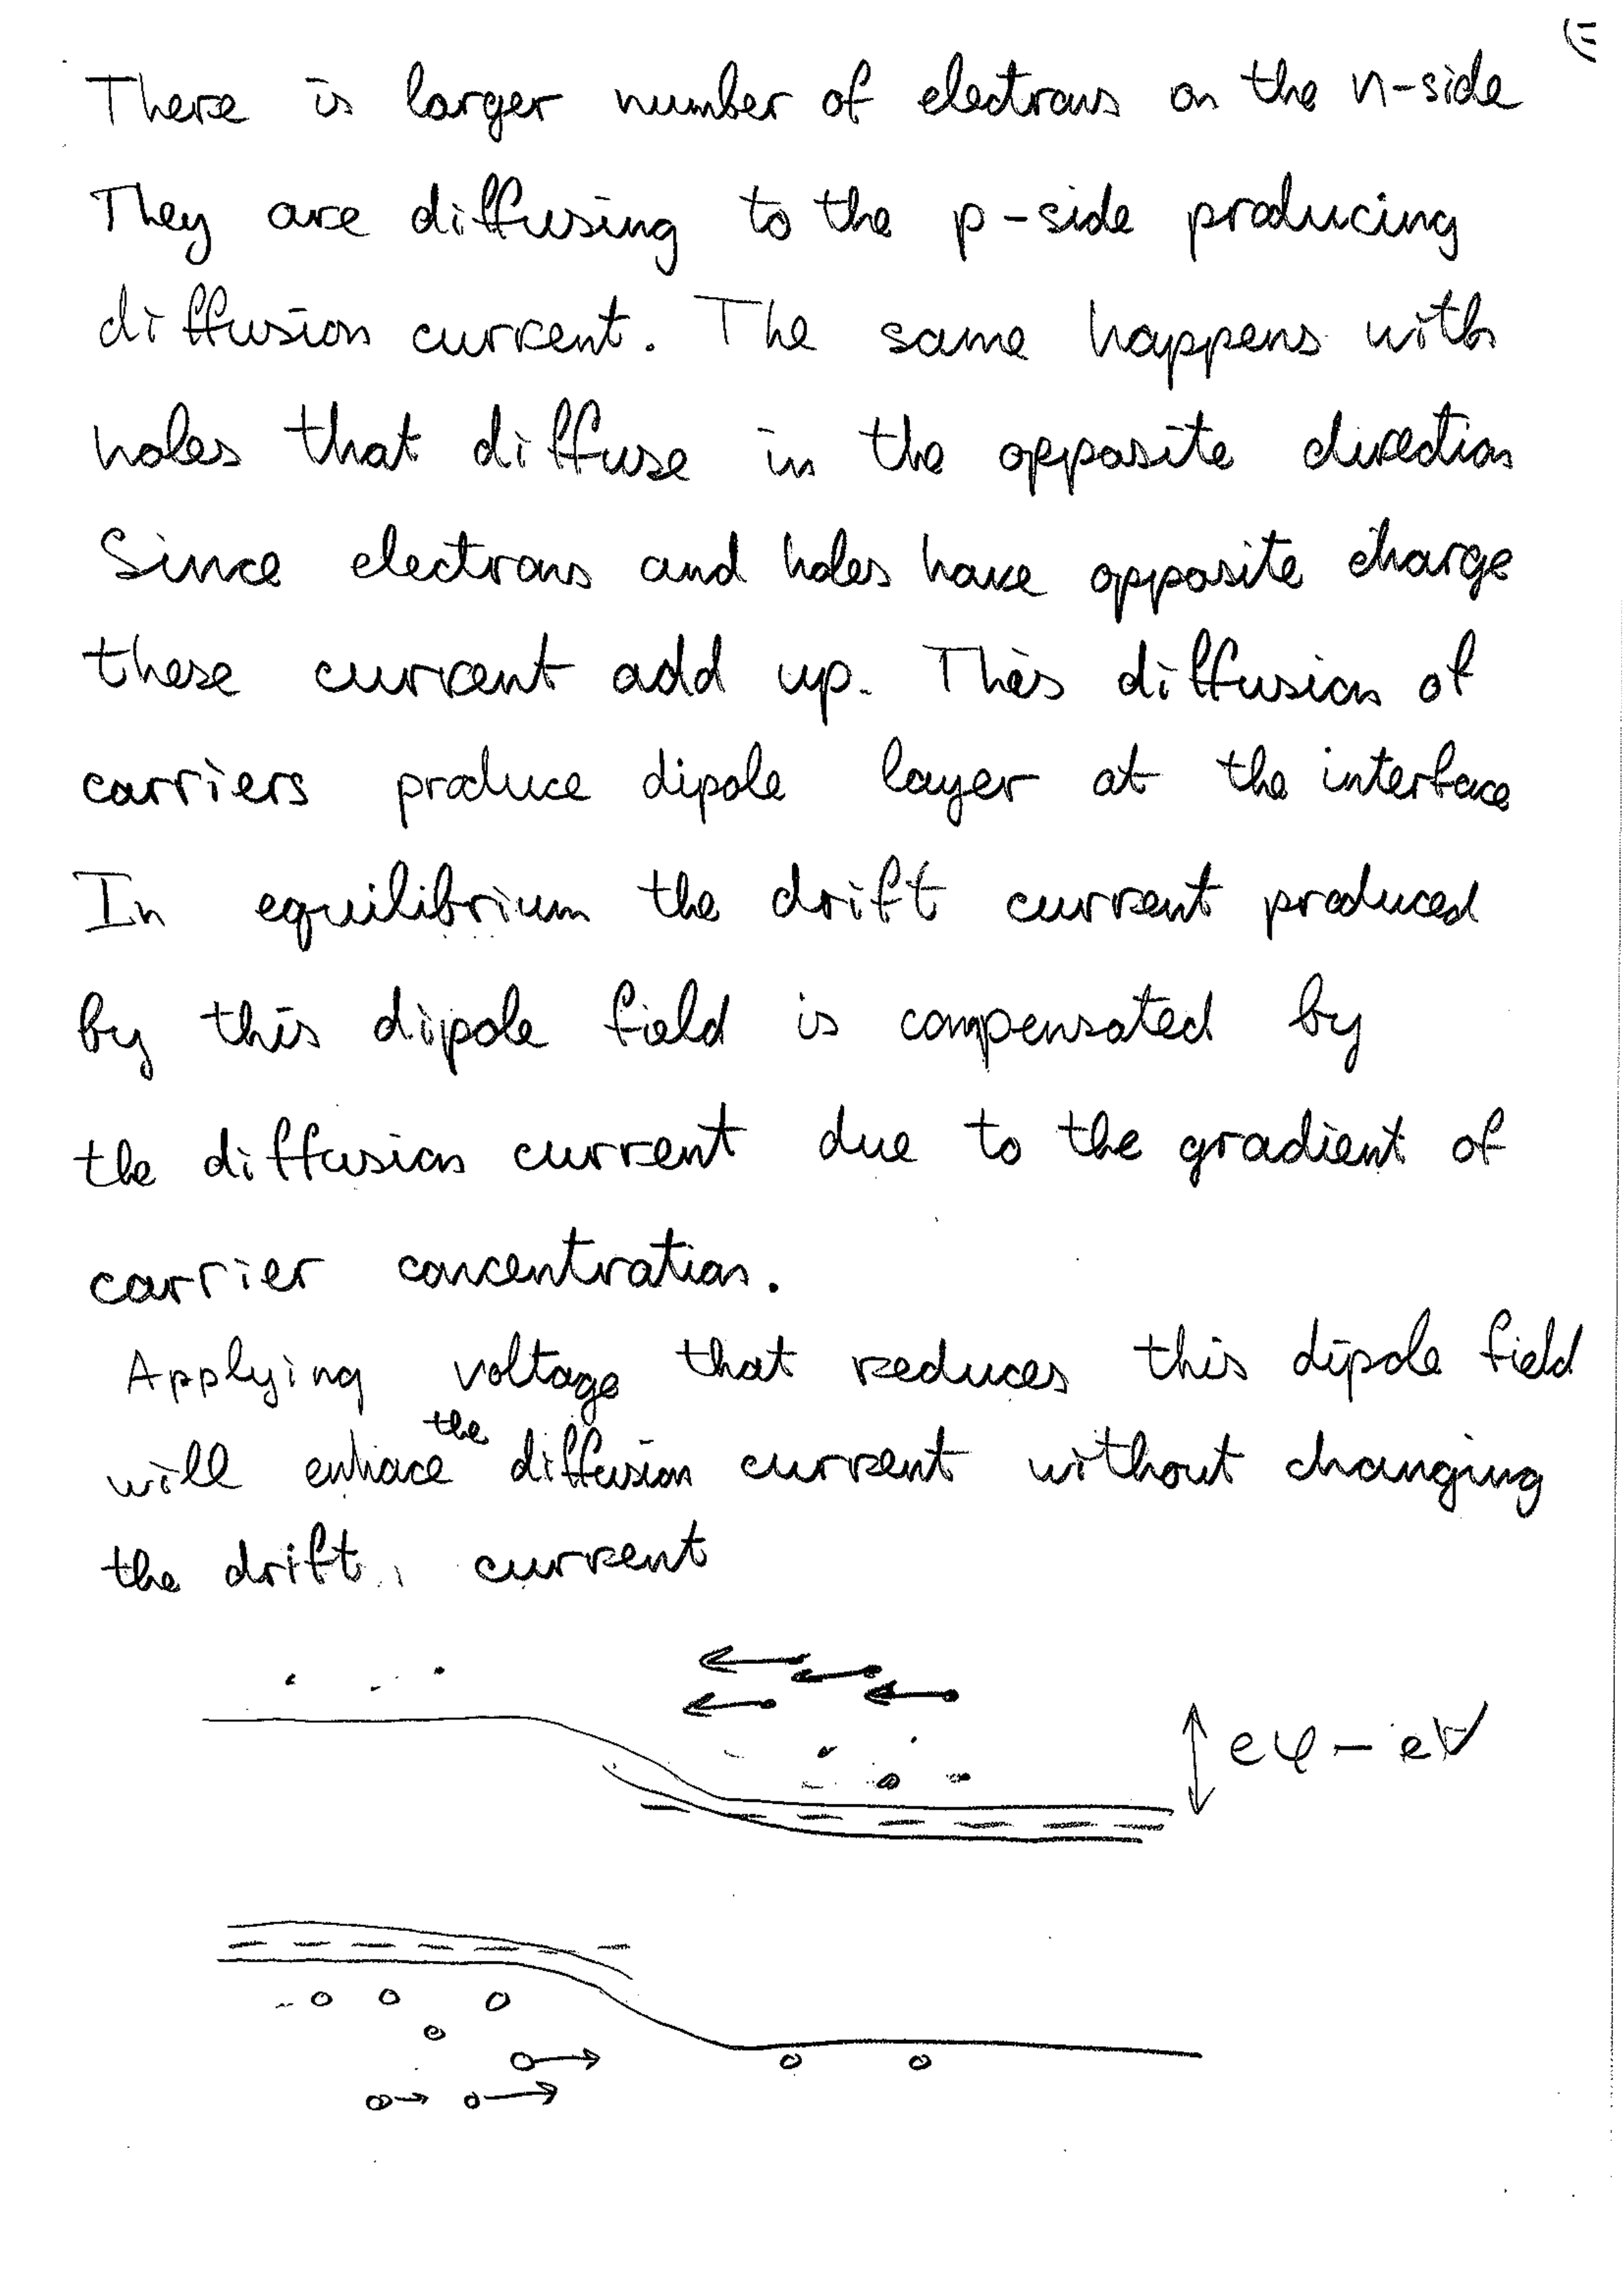 There is larger number of electrons on the n-side
They are diffusing to the p-side producing
diffusion current. The same happens with
holes that diffuse in the opposite direction
Since electrons and holes have opposite charge
these current add up. This diffusion of
carriers produce dipole layer at the interface
In equilibrium the drift current produced
by this dipole field is compensated by
the diffusion current due to the gradient of
carrier concentration.
Applying voltage that reduces this dipole field
will enhace the diffusion current without changing
the drift current
eφ - eV